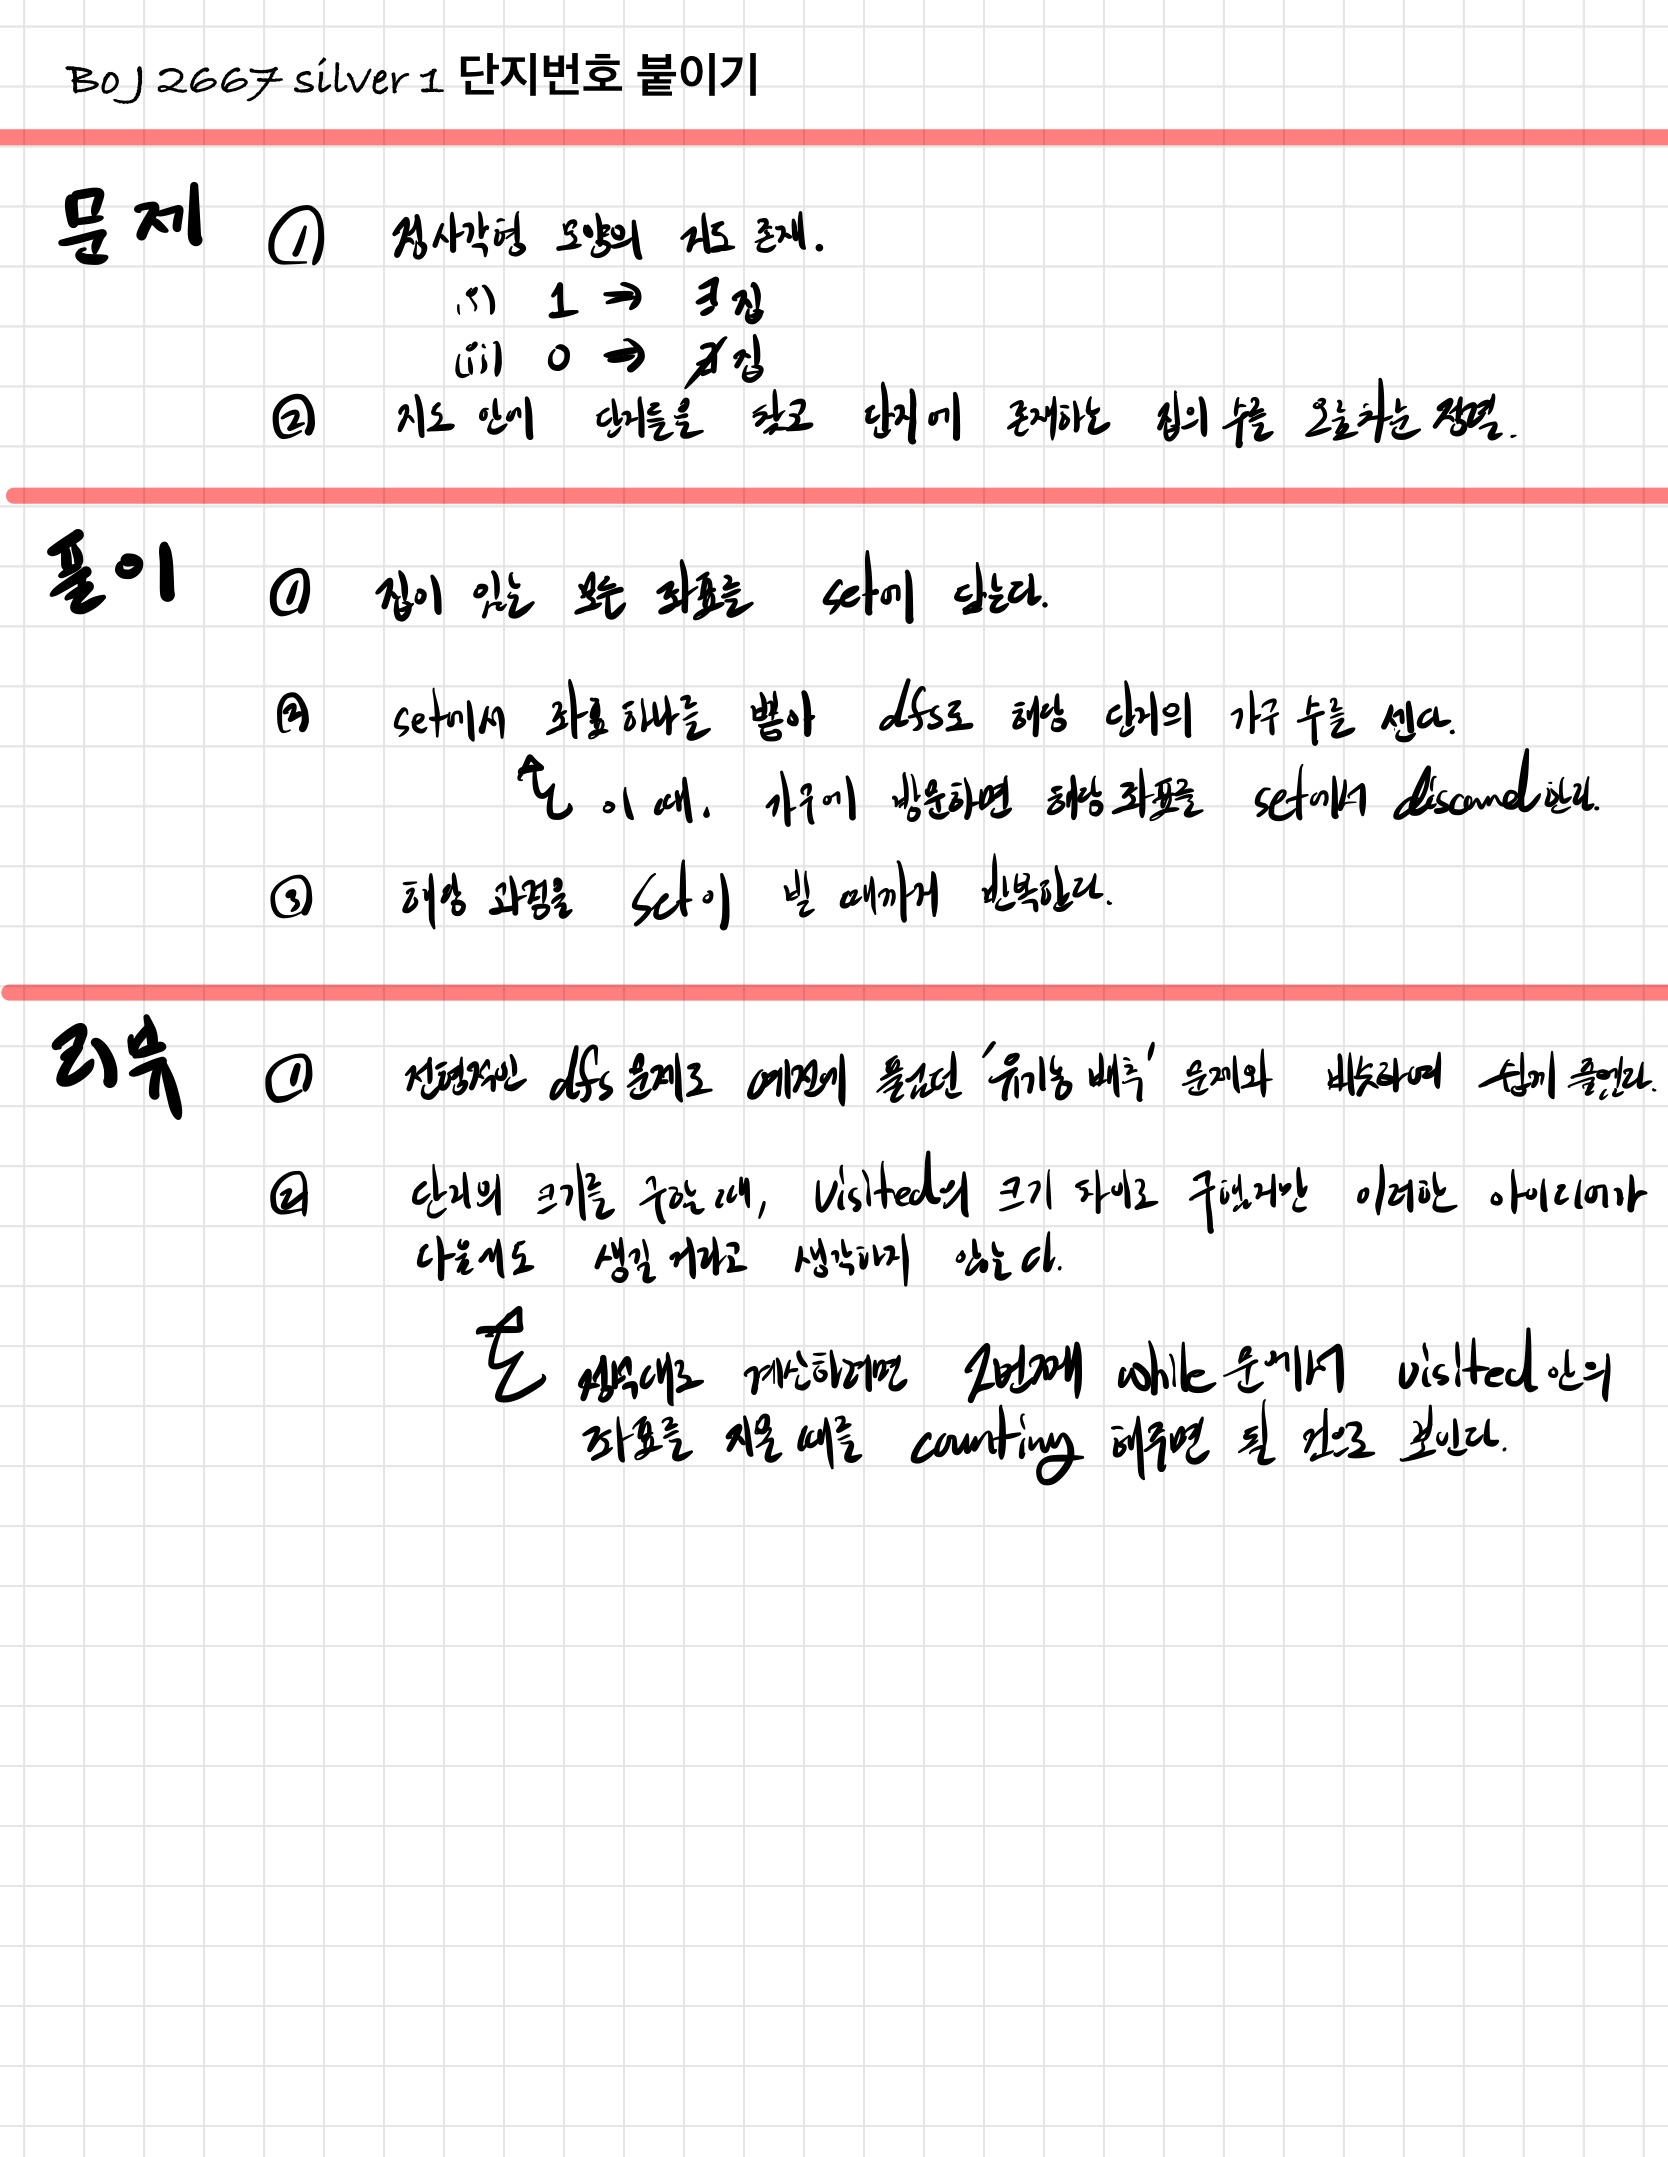 BOJ 2667 silver 1 단지번호 붙이기
문제 ① 정사각형 모양의 지도 존재.
i) 1 → ∃ 집
ii) 0 → ∄ 집
② 지도 안에 단지들을 찾고 단지에 존재하는 집의 수를 오름차순 정렬.
풀이 ① 집이 있는 모든 좌표를 set에 담는다.
② set에서 좌표 하나를 뽑아 dfs로 해당 단지의 가구 수를 센다.
이 때, 가구에 방문하면 해당 좌표를 set에서 discard한다.
③ 해당 과정을 set이 빌 때까지 반복한다.
리뷰 ① 전형적인 dfs 문제로 예전에 풀었던 '유기농 배추' 문제와 비슷하여 쉽게 풀었다.
② 단지의 크기를 구하는 때, visited의 크기 차이로 구했지만 이러한 아이디어가
다음에도 생길 거라고 생각하지 않는다.
정석대로 계산하려면 2번째 while 문에서 visited 안의
좌표를 지울 때를 counting 해주면 될 것으로 보인다.